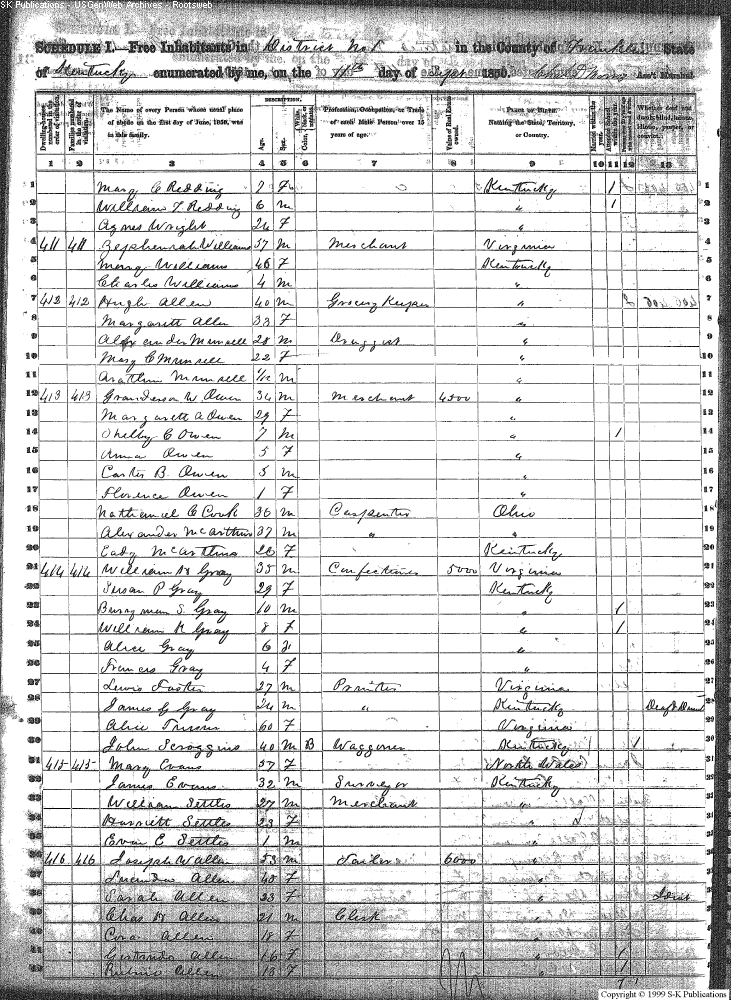 SK Publications - USGenWeb Archives - Rootsweb
SCHEDULE I.—Free Inhabitants in District No 1 in the County of Franklin State
of Kentucky enumerated by me, on the 4th day of Sept 1850. Ass't Marshal.
Dwelling-houses numbered in the order of visitation.
Families numbered in the order of visitation.
The Name of every Person whose usual place of abode on the first day of June, 1850, was in this family.
DESCRIPTION.
Age.
Sex.
Color, White, black, or mulatto.
Profession, Occupation, or Trade of each Male Person over 15 years of age.
Value of Real Estate owned.
PLACE OF BIRTH. Naming the State, Territory, or Country.
Married within the year.
Whether deaf and dumb, blind, insane, idiotic, pauper, or convict.
1 2 3 4 5 6 7 8 9 10 11 12 13
1 Mary C Redding 7 F Kentucky 1 1
2 William T Redding 6 m " 1 2
3 Agnes Wright 26 F " 3
4 411 411 Williams 37 m Merchant Virginia 4
5 Mary Williams 46 F Kentucky 5
6 Charles Williams 4 m " 6
7 412 412 Hugh Allen 40 m Grocery Keeper " 7
8 Margarett Allen 33 F " 8
9 Alexander Munsell 28 m Druggist " 9
10 Mary C Munsell 22 F " 10
11 Munsell 1/12 m " 11
12 413 413 Granderson W Owen 34 m Merchant 4500 " 12
13 Margarett A Owen 29 F " 13
14 Shelby C Owen 7 m " 1 14
15 Anna Owen 5 F " 15
16 Carter B. Owen 3 m " 16
17 Florence Owen 1 F " 17
18 Nathaniel C Cook 36 m Carpenter Ohio 18
19 Alexander McArthur 37 m " " 19
20 Eady McArthur 26 F Kentucky 20
21 414 414 William H Gray 35 m Confectioner 5000 Virginia 21
22 Susan P Gray 29 F Kentucky 22
23 S. Gray 10 m " 1 23
24 William H Gray 8 F " 1 24
25 Alice Gray 6 F " 25
26 Frances Gray 4 F " 26
27 Lewis Foster 27 m Printer Virginia 27
28 James G Gray 24 m " Kentucky Deaf & Dumb 28
29 Alice 60 F Virginia 29
30 John Scroggins 40 m B Waggoner Kentucky 1 30
31 415 415 Mary Evans 57 F North Wales 31
32 James Evans 32 m Surveyor Kentucky 32
33 William Settles 27 m Merchant " 33
34 Harriett Settles 23 F " 34
35 Evan E Settles 1 m " 35
36 416 416 Joseph W Allen 53 m 6000 " 36
37 Lucinda Allen 40 F " 37
38 Sarah Allen 23 F " Idiot 38
39 Chas H Allen 21 m Clerk " 39
40 Cora Allen 18 F " 40
41 Allen 16 F " 1 41
42 Allen 13 F " 1 42
Copyright © 1999 S-K Publications